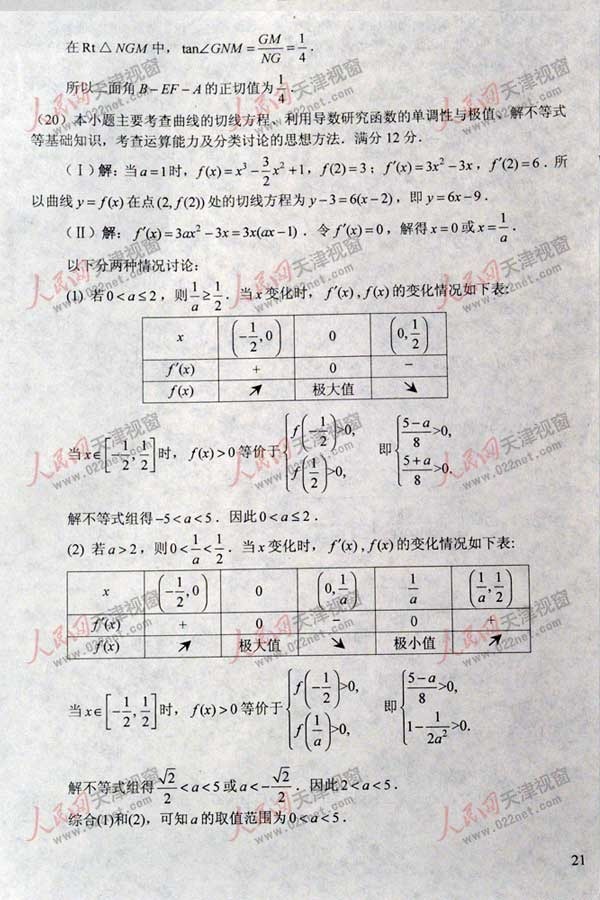 在 Rt △ NGM 中，tan∠GNM = GM/NG = 1/4 .
所以二面角 B－EF－A 的正切值为 1/4 .
（20）本小题主要考查曲线的切线方程、利用导数研究函数的单调性与极值、解不等式
等基础知识，考查运算能力及分类讨论的思想方法．满分 12 分．
（Ⅰ）解：当 a=1 时，f(x)=x³－3/2x²+1，f(2)=3；f′(x)=3x²－3x，f′(2)=6．所
以曲线 y=f(x) 在点 (2, f(2)) 处的切线方程为 y－3=6(x－2)，即 y=6x－9．
（Ⅱ）解：f′(x)=3ax²－3x=3x(ax－1)．令 f′(x)=0，解得 x=0 或 x=1/a．
以下分两种情况讨论：
(1) 若 0<a≤2，则 1/a≥1/2．当 x 变化时，f′(x) , f(x) 的变化情况如下表:
x (－1/2,0) 0 (0,1/2)
f′(x) + 0 －
f(x) ↗ 极大值 ↘
当 x∈[－1/2, 1/2] 时，f(x)>0 等价于 { f(－1/2)>0, f(1/2)>0, 即 { (5－a)/8>0, (5+a)/8>0.
解不等式组得 －5<a<5．因此 0<a≤2．
(2) 若 a>2，则 0<1/a<1/2．当 x 变化时，f′(x) , f(x) 的变化情况如下表:
x (－1/2,0) 0 (0,1/a) 1/a (1/a,1/2)
f′(x) + 0 － 0 +
f(x) ↗ 极大值 ↘ 极小值 ↗
当 x∈[－1/2, 1/2] 时，f(x)>0 等价于 { f(－1/2)>0, f(1/a)>0, 即 { (5－a)/8>0, 1－1/(2a²)>0.
解不等式组得 √2/2<a<5 或 a<－√2/2．因此 2<a<5．
综合(1)和(2)，可知 a 的取值范围为 0<a<5．
21
人民网天津视窗
www.022net.com